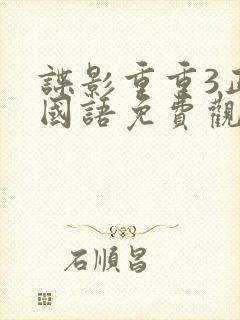 諜影重重3
國語免費觀
石順昌